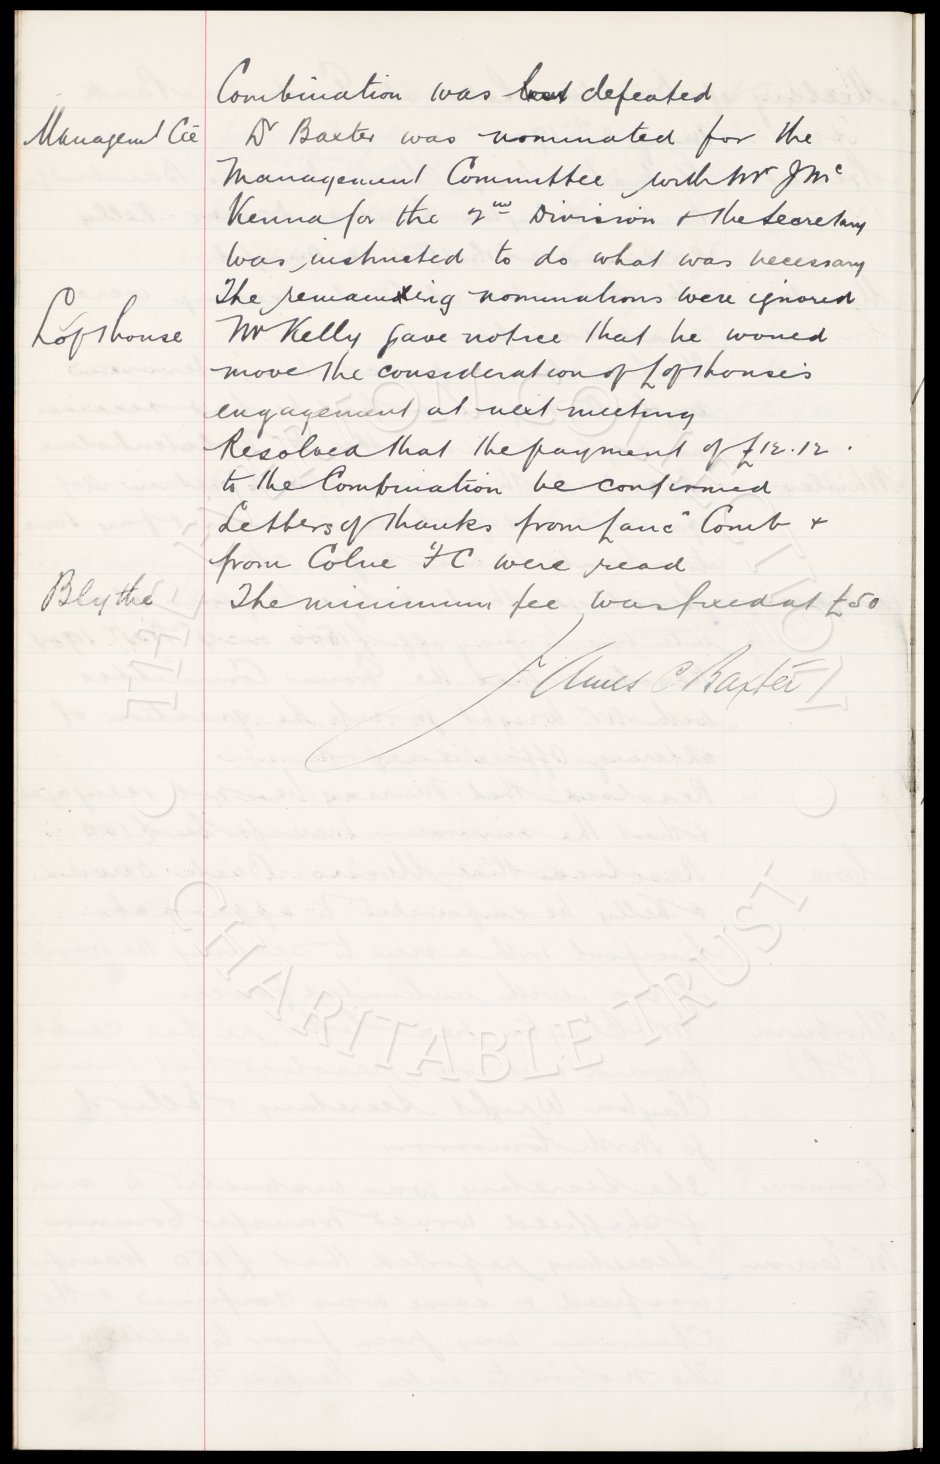 Combination was lost defeated
Managemt Cee Dr Baxter was nominated for the
Management Committee with Mr J Mc
Kenna for the 2nd Division & the Secretary
was instructed to do what was necessary
The remaining nominations were ignored
Lofthouse Mr Kelly gave notice that he would
move the consideration of Lofthouse's
engagement at next meeting
Resolved that the payment of £12.12.
to the Combination be confirmed
Letters of thanks from Lanc Comb &
from Colne F C were read
Blythe The minimum fee was fixed at £50
James C Baxter
CHARITABLE TRUST